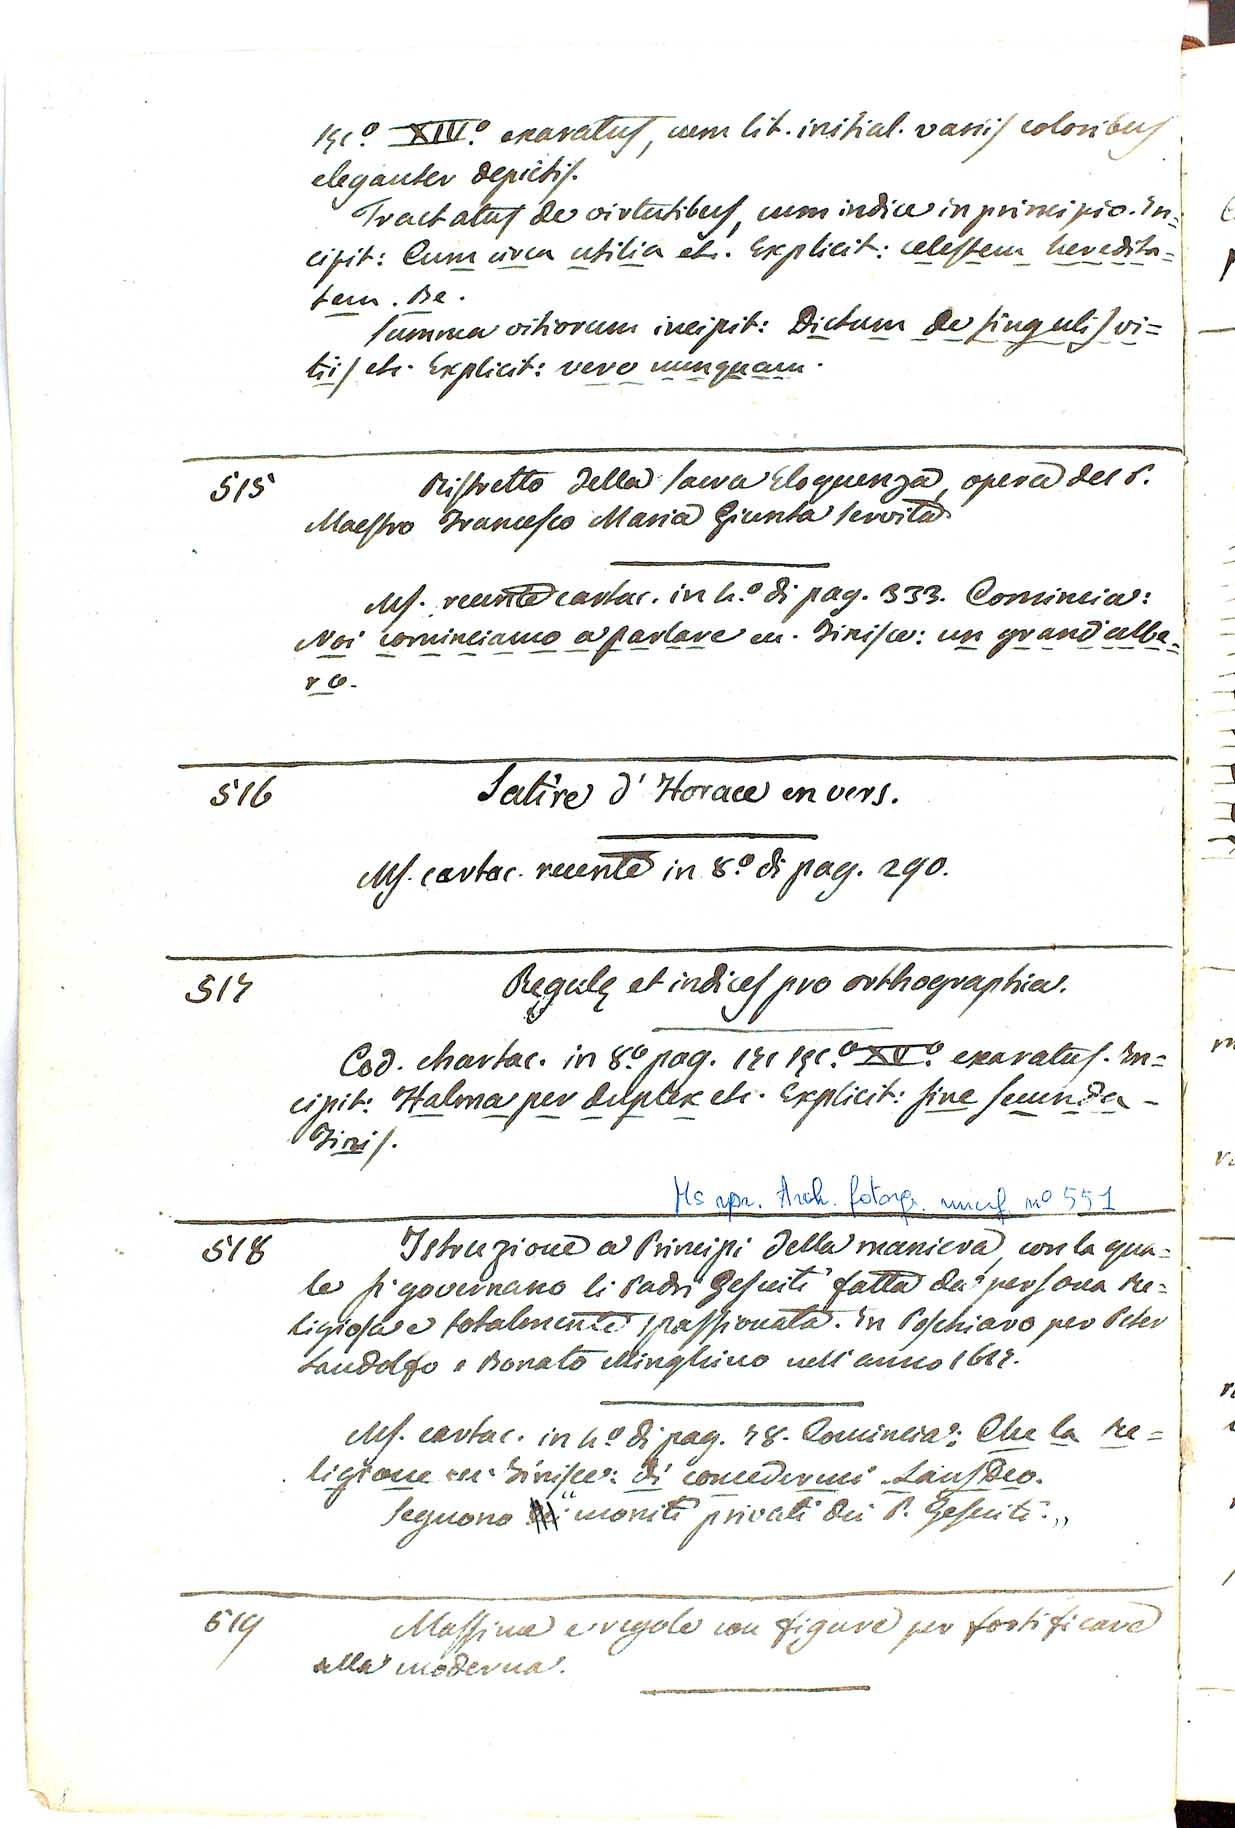 sec.º XIV.º exaratus, cum lit. initial. variis coloribus
eleganter depictis.
Tractatus de virtutibus, cum indice in principio. In=
cipit: Cum circa utilia etc. Explicit: celestem heredita=
tem. Be.
Summa vitiorum incipit: Dictum de singulis vi=
tiis etc. Explicit: vero nunquam.
515 Ristretto della Sacra Eloquenza, opera del P.
Maestro Francesco Maria Giunta Servita
Ms. recente cartac. in 4.º di pag. 333. Comincia:
Noi cominciamo a parlare ec. Finisce: un grand'albe=
ro.
516 Satire d'Horace en vers.
Ms. cartac. recente in 8.º di pag. 290.
517 Regulę et indices pro orthographia.
Cod. chartac. in 8.º pag. sec.º XV.º exaratus. In=
cipit: Halma per duplex etc. Explicit: sine secunda
Finis.
Ms ripr. Arch. fotogr. nº 551
518 Istruzione a Principi della maniera, con la qua=
le si governano li Padri Gesuiti fatta da persona re=
ligiosa e totalmente spassionata. In Poschiavo per Peter
Landolfo e Bonato Minghino nell'anno 1617.
Ms. cartac. in 4.º di pag. 78. Comincia: Che la re=
ligione ec. Finisce: di concedermi. Laus Deo.
Seguono "moniti privati dei P. Gesuiti.„
519 Massime e regole con figure per fortificare
alla moderna.